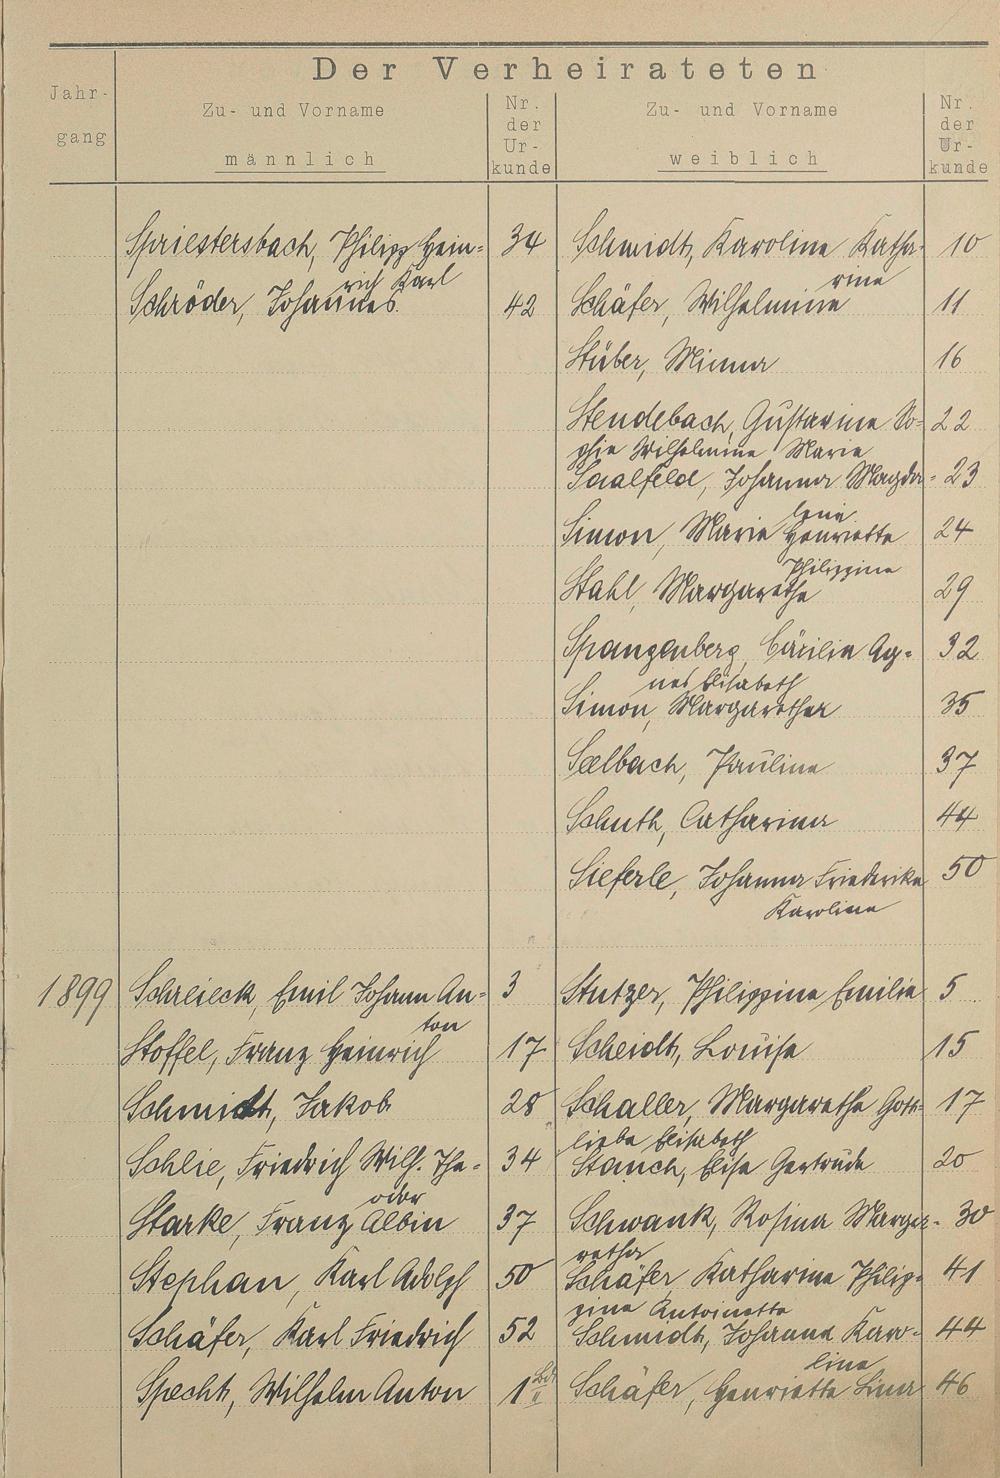 Der Verheirateten
Jahr-
gang
Zu- und Vorname
männlich
Nr.
der
Ur-
kunde
Zu- und Vorname
weiblich
Nr.
der
Ur-
kunde
Spriestersbach, Philipp Hein= 34 Schmidt, Karoline Katha- 10
rich Karl rine
Schröder, Johannes. 42 Schäfer, Wilhelmine 11
Stüber, Minna 16
Stendebach, Gustavine So= 22
phie Wilhelmine Marie
Saalfeld, Johanna Magda= 23
lene
Simon, Marie Henriette 24
Philippine
Stahl, Margarethe 29
Spangenberg, Cäcilia Ag= 32
nes Elisabeth
Simon, Margaretha 35
Saelbach, Pauline 37
Schuth, Catharina 44
Sieferle, Johanna Friederike 50
Karoline
1899 Schreieck, Emil Johann An= 3 Stutzer, Philippine Emilie 5
ton
Stoffel, Franz Heinrich 17 Scheidt, Louise 15
Schmidt, Jakob 28 Schaller, Margarethe Gott= 17
liebe Elisabeth
Schlie, Friedrich Wilh. The= 34 Stauch, Elise Gertrude 20
odor
Starke, Franz Albin 37 Schwank, Rosina Marga- 30
retha
Stephan, Karl Adolph 50 Schäfer Katharine Philip= 41
pine Antoinette
Schäfer, Karl Friedrich 52 Schmidt, Johanna Karo= 44
line
Specht, Wilhelm Anton 1 Bd. II Schäfer, Henriette Lina 46